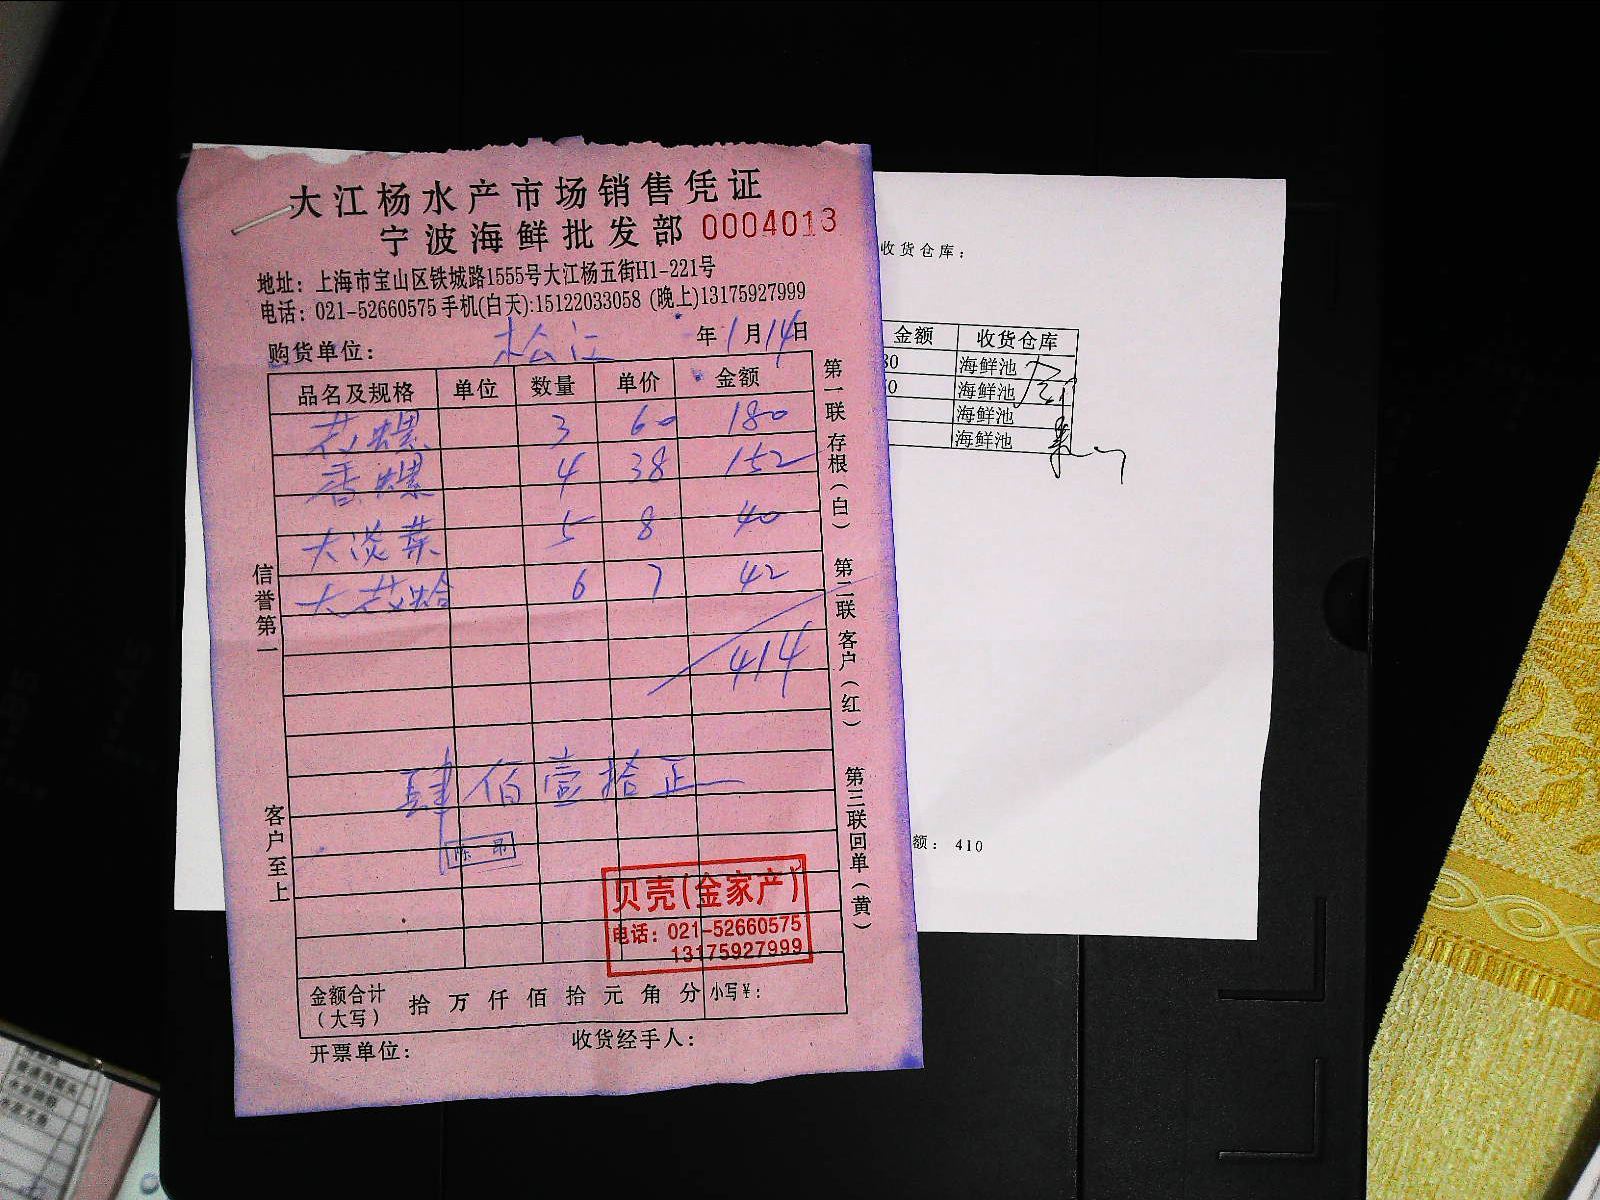 大江杨水产市场销售凭证
宁波海鲜批发部 0004013
地址：上海市宝山区铁城路1555号大江杨五街H1-221号
电话：021-52660575 手机(白天):15122033058 (晚上)13175927999
购货单位： 松江 年1月14日
品名及规格 单位 数量 单价 金额
花螺 3 60 180
香螺 4 38 152
大淡菜 5 8 40
大花蛤 6 7 42
414
肆佰壹拾正
贝壳(金家产)
电话：021-52660575
13175927999
金额合计
（大写） 拾 万 仟 佰 拾 元 角 分 小写￥：
开票单位： 收货经手人：
信誉第一
客户至上
第一联存根（白）
第二联客户（红）
第三联回单（黄）
收货仓库：
金额 收货仓库
80 海鲜池
0 海鲜池
海鲜池
海鲜池
额：410